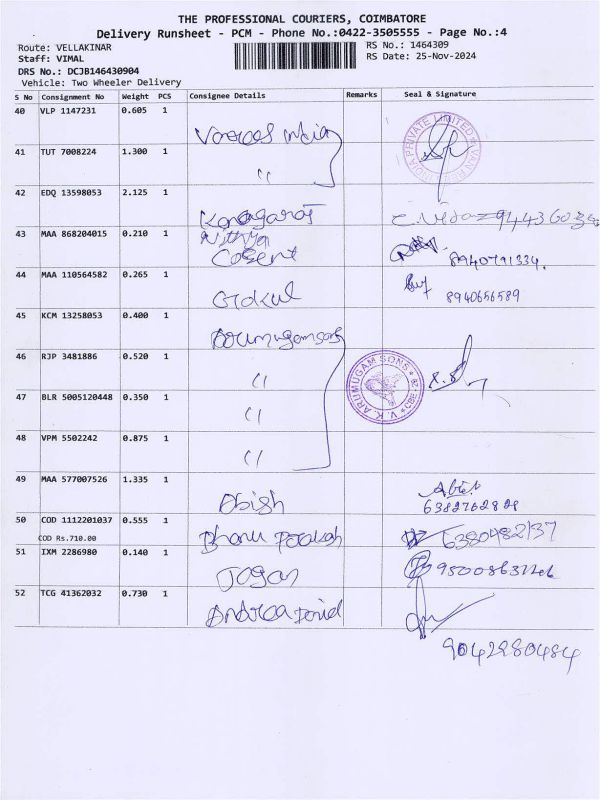 THE PROFESSIONAL COURIERS, COIMBATORE
Delivery Runsheet - PCM - Phone No.:0422-3505555 - Page No.:4
Route: VELLAKINAR
RS No.: 1464309
Staff: VIMAL
RS Date: 25-Nov-2024
DRS No.: DCJB146430904
Vehicle: Two Wheeler Delivery
S No Consignment No Weight PCS Consignee Details Remarks Seal & Signature
40 VLP 1147231 0.605 1
PRIVATE LIMITED
41 TUT 7008224 1.300 1
"
42 EDQ 13598053 2.125 1
Kanagaraj
43 MAA 868204015 0.210 1 Nithya
8940791334.
44 MAA 110564582 0.265 1
Gokul 8940656589
45 KCM 13258053 0.400 1
46 RJP 3481886 0.520 1
"
V.K. ARUMUGAM SONS CBE
47 BLR 5005120448 0.350 1
"
48 VPM 5502242 0.875 1
"
49 MAA 577007526 1.335 1
Abish
50 COD 1112201037 0.555 1
COD Rs.710.00 Bhanu
51 IXM 2286980 0.140 1
Jagan
52 TCG 41362032 0.730 1
Andrea
9042280484